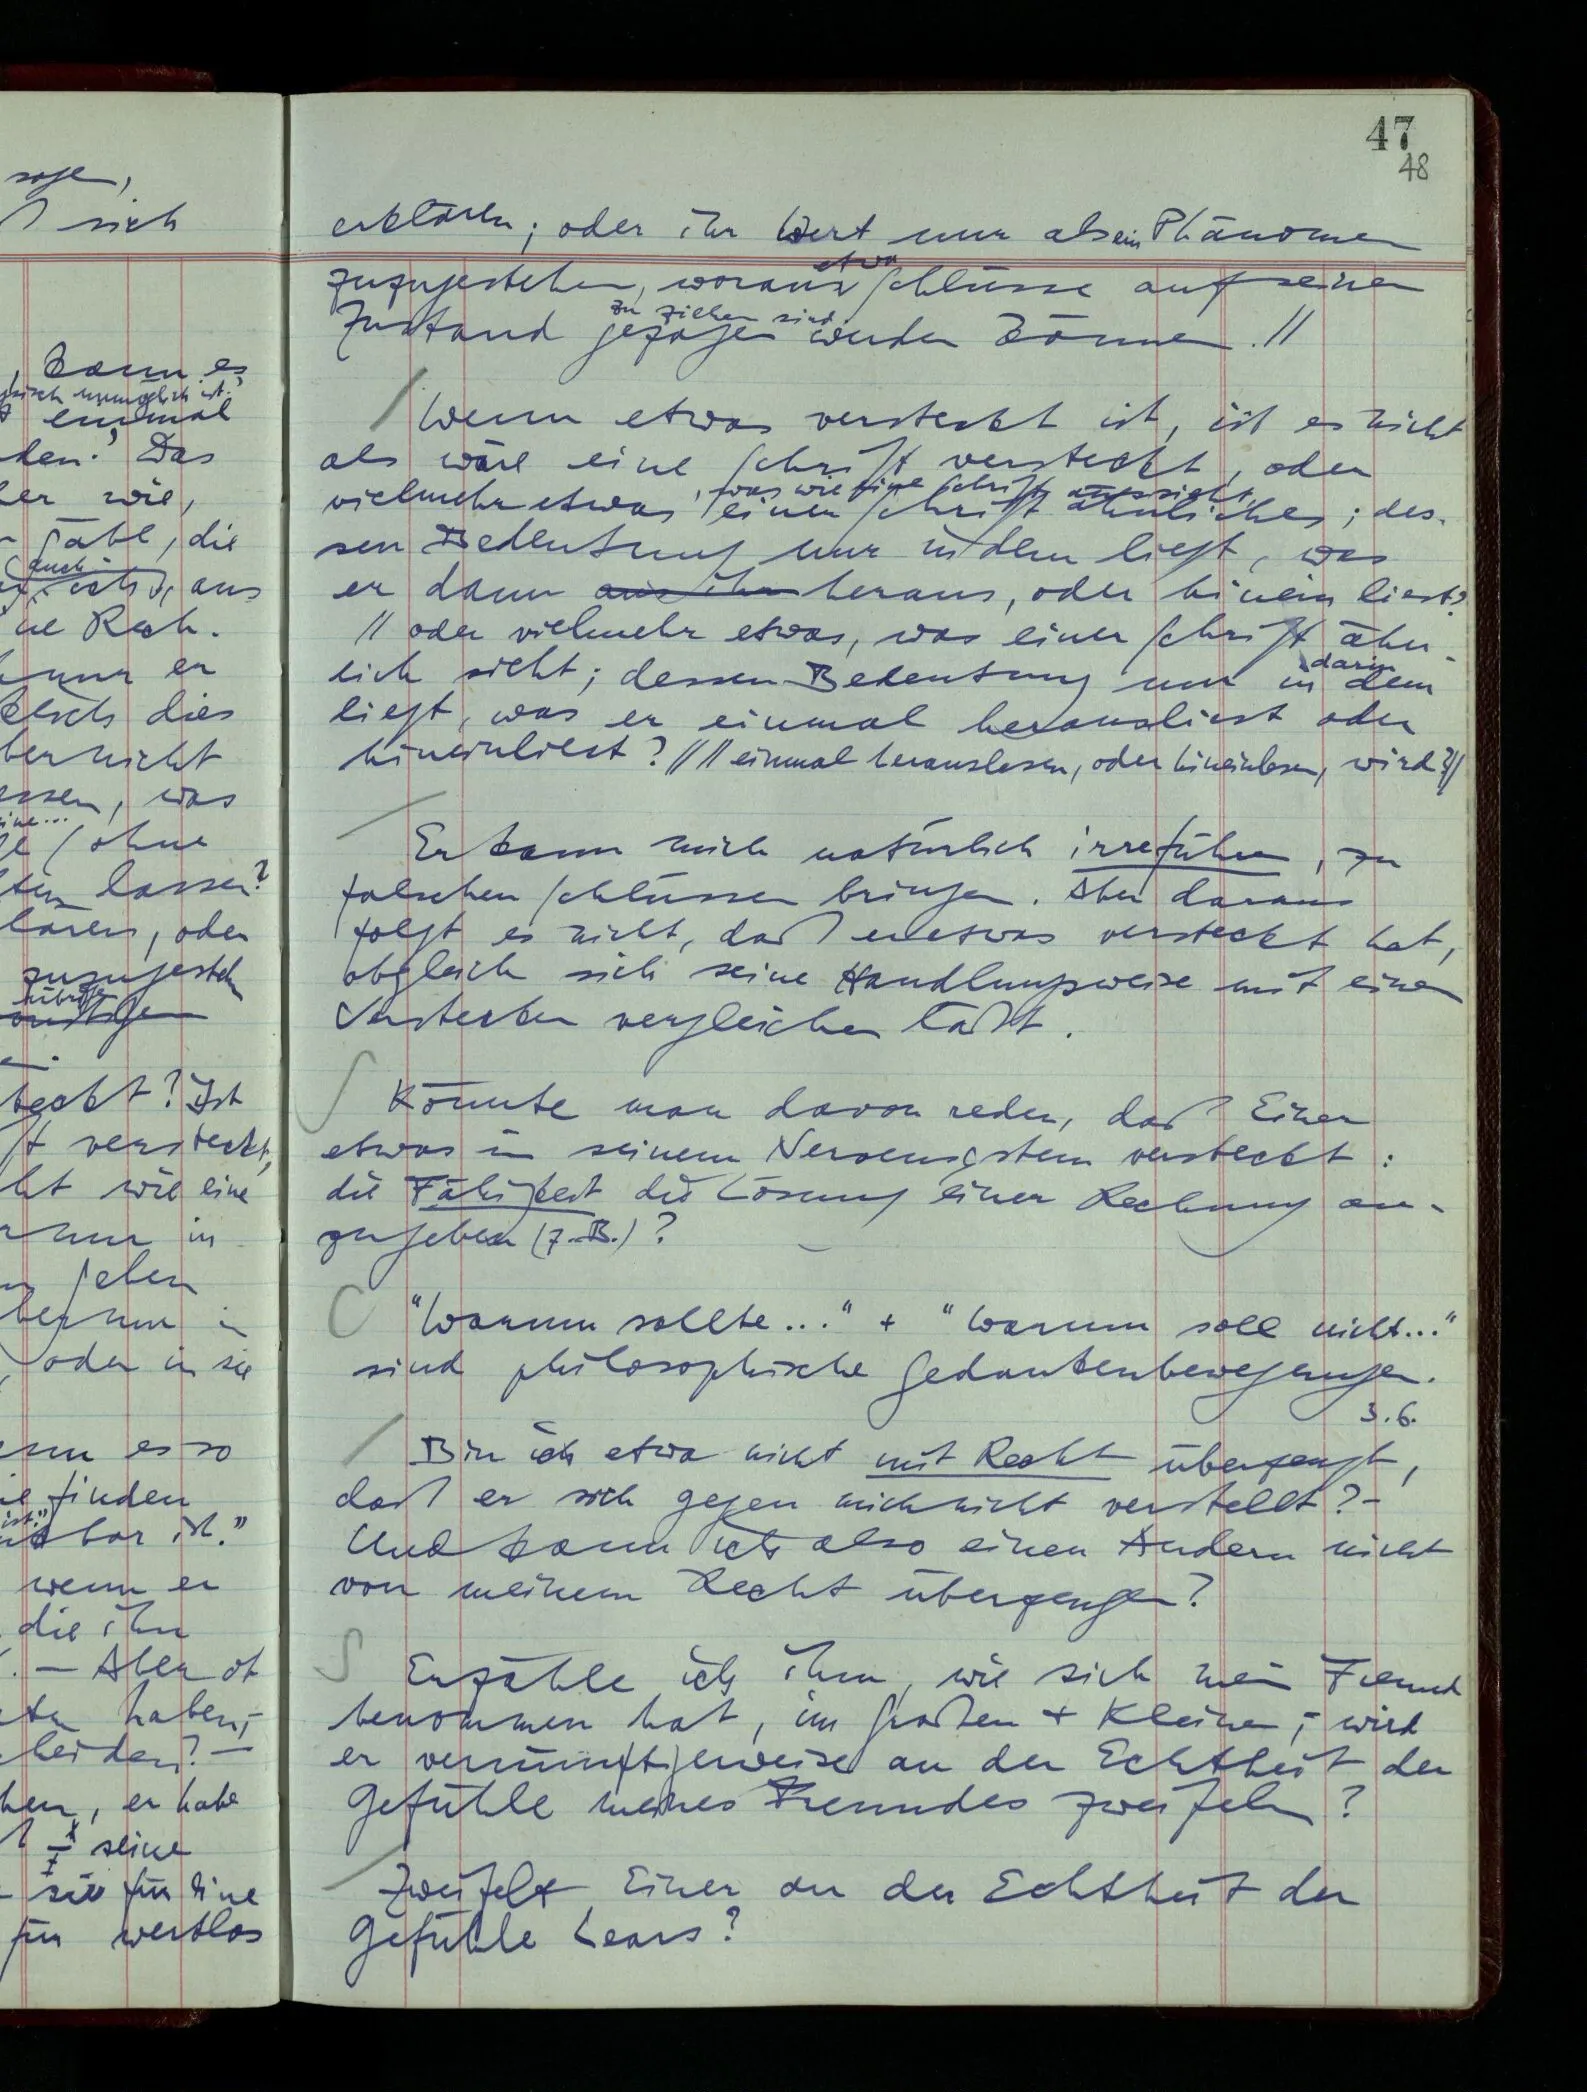 sage,
sich
kann es
einmal
den? Das
her wie,
gäbe, die
auch
aus
ne Rech-
nur er
dies
ber nicht
essen, was
eine...
ohne
lassen?
lären, oder
zuzugestehn
teckt? Ist
ft versteckt,
ht wie eine
nur in
geben
ber nur in
oder in sie
nn es so
ie finden
ist."
bar ist."
wenn er
die ihn
. — Aber ob
haben,
heiden? —
hen, er habe
seine
sie für eine
für wertlos
47
48
erklären; oder ihr Wert nur als ein Phänomen
etwa
zuzugestehen, woraus Schlüsse auf seinen
zu ziehen sind.
Zustand gezogen werden können. //
/ Wenn etwas versteckt ist, ist es nicht
als wäre eine Schrift versteckt, oder
, was wie eine Schrift aussieht,
vielmehr etwas einer Schrift ähnliches; des-
sen Bedeutung nur in dem liegt, was
er dann aus ihr heraus, oder hinein liest?
// oder vielmehr etwas, was einer Schrift ähn-
darin
lich sieht; dessen Bedeutung nur in dem
liegt, was er einmal herausliest oder
hineinliest? // // einmal herauslesen, oder hineinlesen, wird? //
/ Er kann mich natürlich irreführen, zu
falschen Schlüssen bringen. Aber daraus
folgt es nicht, daß er etwas versteckt hat,
obgleich sich seine Handlungsweise mit einem
Verstecken vergleichen läßt.
S Könnte man davon reden, daß Einer
etwas in seinem Nervensystem versteckt:
die Fähigkeit die Lösung einer Rechnung an-
zugeben (z.B.)?
C "Warum sollte..." + "Warum soll nicht..."
sind philosophische Gedankenbewegungen.
3.6.
/ Bin ich etwa nicht mit Recht überzeugt,
daß er sich gegen mich nicht verstellt? –
Und kann ich also einen Andern nicht
von meinem Recht überzeugen?
S Erzähle ich ihm, wie sich mein Freund
benommen hat, im Großen + Kleinen, wird
er vernünftigerweise an der Echtheit der
Gefühle meines Freundes zweifeln?
/ Zweifelt Einer an der Echtheit der
Gefühle Lears?